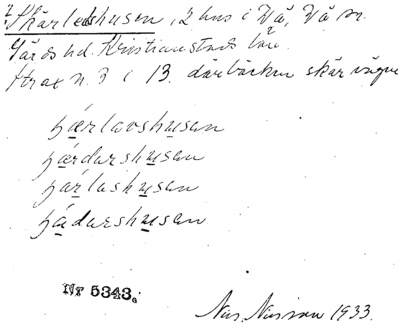 ? Skärledshusen, 2 hus i Vä, Vä sn.
Gärds hd. Kristianstads län.
Strax n. 3 i 13. där bäcken skär vägen
hærlavshusan
hærdarshusan
hárlashusan
hádarshusan
Nr 5343.
Nils Nilsson 1933.